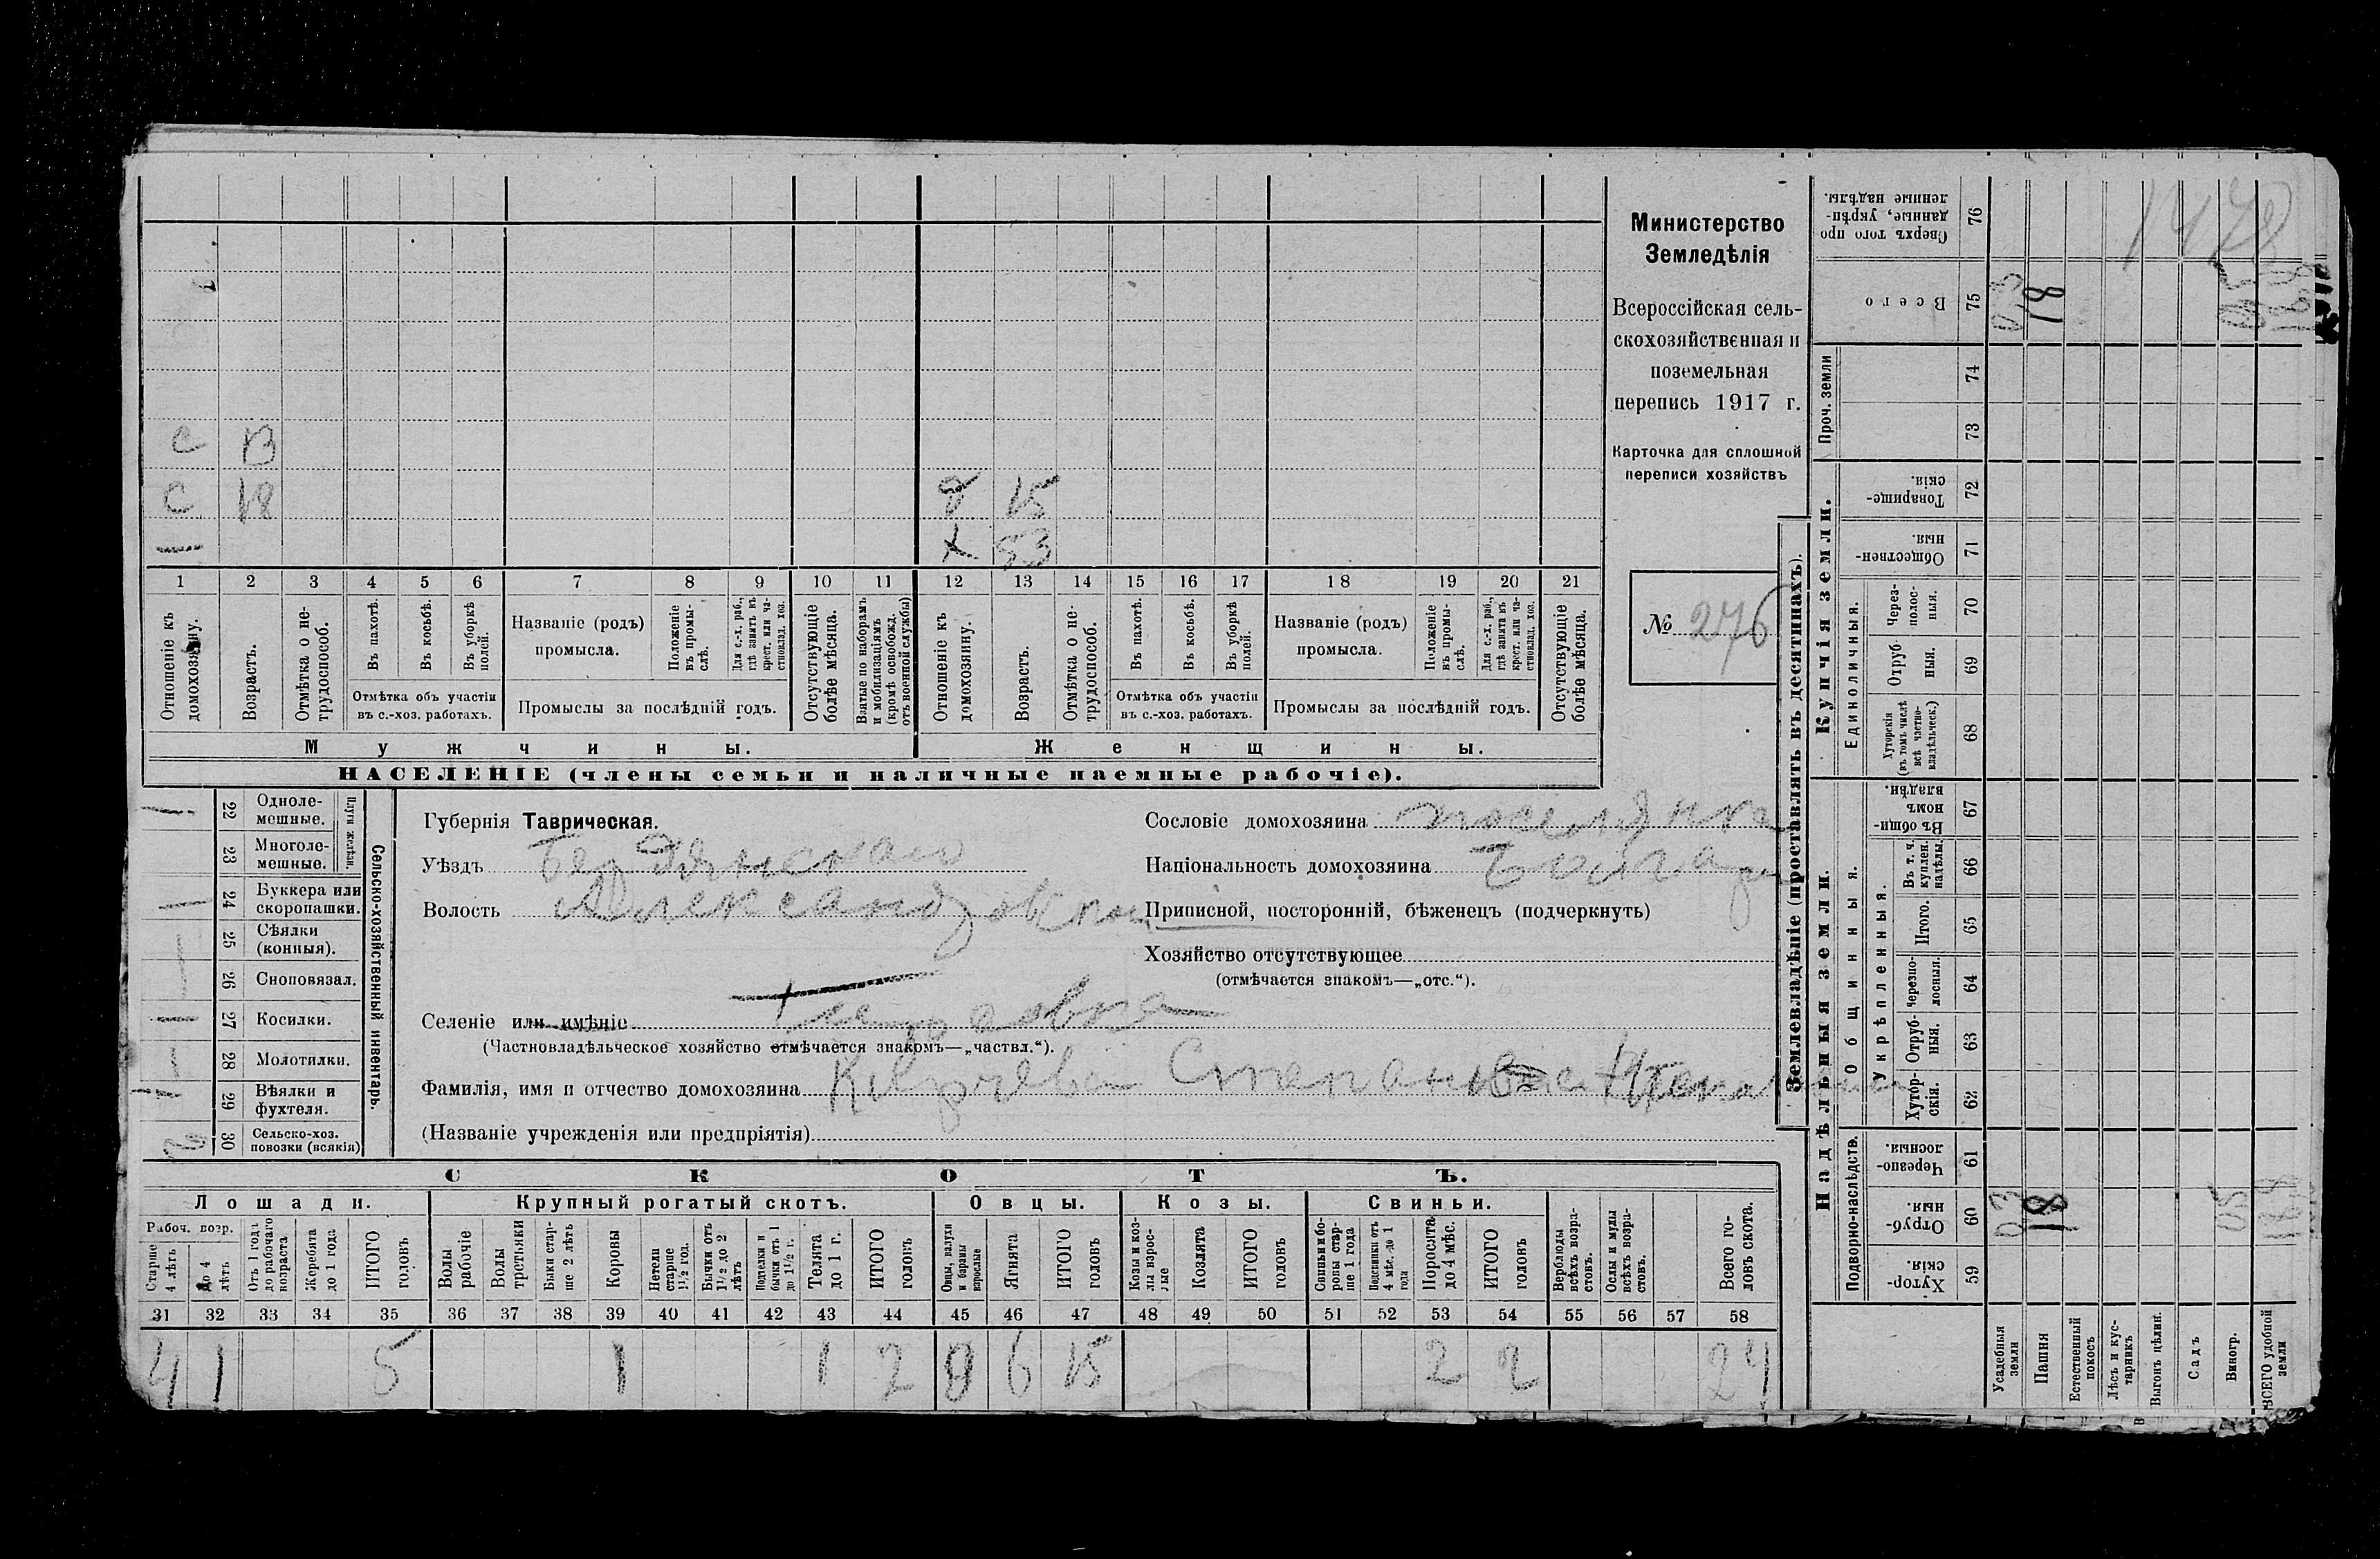 Министерство
Земледѣлія
Всероссійская сель-
скохозяйственная и
поземельная
перепись 1917 г.
Карточка для сплошной
переписи хозяйствъ
№ 276
С 13
С 18
15
53
1 2 3 4 5 6 7 8 9 10 11 12 13 14 15 16 17 18 19 20 21
Отношеніе къ домохозяину.
Возрастъ.
Отмѣтка о не-трудоспособ.
Въ пахотѣ.
Въ косьбѣ.
Въ уборкѣ полей.
Отмѣтка объ участіи
въ с.-хоз. работахъ.
Названіе (родъ)
промысла.
Положеніе въ промы-слѣ.
Для с.-х. раб., гдѣ занятъ въ крест. или ча-стновлад. хоз.
Промыслы за послѣдній годъ.
Отсутствующіе болѣе мѣсяца.
Взятые по наборамъ и мобилизаціямъ (кромѣ освобожд. отъ военной службы)
Отношеніе къ домохозяину.
Возрастъ.
Отмѣтка о не-трудоспособ.
Въ пахотѣ.
Въ косьбѣ.
Въ уборкѣ полей.
Отмѣтка объ участіи
въ с.-хоз. работахъ.
Названіе (родъ)
промысла.
Положеніе въ промы-слѣ.
Для с.-х. раб., гдѣ занятъ въ крест. или ча-стновлад. хоз.
Промыслы за послѣдній годъ.
Отсутствующіе болѣе мѣсяца.
Мужчины.
Женщины.
НАСЕЛЕНІЕ (члены семьи и наличные наемные рабочіе).
Сельско-хозяйственный инвентарь.
Плуги желѣзн.
22 Одноле-мешные.
23 Многоле-мешные.
24 Буккера или скоропашки.
25 Сѣялки (конныя).
26 Сноповязал.
27 Косилки.
28 Молотилки.
29 Вѣялки и фухтеля.
30 Сельско-хоз. повозки (всякія)
Губернія Таврическая.
Уѣздъ Бердянскаго
Волость Александровской
Селеніе или имѣніе
(Частновладѣльческое хозяйство отмѣчается знакомъ—„частвл.“).
Фамилія, имя и отчество домохозяина
(Названіе учрежденія или предпріятія)
Сословіе домохозяина поселянинъ
Національность домохозяина Болгаринъ
Приписной, посторонній, бѣженецъ (подчеркнуть)
Хозяйство отсутствующее
(отмѣчается знакомъ—„отс.“).
СКОТЪ.
Лошади.
Крупный рогатый скотъ.
Овцы.
Козы.
Свиньи.
Рабоч. возр.
Старше 4 лѣтъ
До 4 лѣтъ
Отъ 1 года до рабочаго возраста
Жеребята до 1 года
ИТОГО головъ
Волы рабочіе
Волы третьяки
Быки стар-ше 2 лѣтъ
Коровы
Нетели старше 1½ год.
Бычки отъ 1½ до 2 лѣтъ
Подтелки и бычки отъ 1 до 1½ г.
Телята до 1 г.
ИТОГО головъ
Овцы, валухи и бараны взрослые
Ягнята
ИТОГО головъ
Козы и коз-лы взрос-лые
Козлята
ИТОГО головъ
Свиньи и бо-ровы стар-ше 1 года
Подсвинки отъ 4 мѣс. до 1 года
Поросята до 4 мѣс.
ИТОГО головъ
Верблюды всѣхъ возра-стовъ.
Ослы и мулы всѣхъ возра-стовъ.
Всего го-ловъ скота.
31 32 33 34 35 36 37 38 39 40 41 42 43 44 45 46 47 48 49 50 51 52 53 54 55 56 57 58
4 1 5 1 1 2 9 6 15 2 2 24
Землевладѣніе (проставлять въ десятинахъ).
Надѣльныя земли.
Купчія земли.
Проч. земли
Подворно-наслѣдств.
Общинныя.
Укрѣпленныя.
Единоличныя.
Хутор-скія. 59
Отруб-ныя. 60
Черезпо-лосныя. 61
Хутор-скія. 62
Отруб-ныя. 63
Черезпо-лосныя. 64
Итого. 65
Въ т. ч. куплен. надѣлы. 66
Въ общи-номъ владѣн. 67
Хуторскія (въ томъ числѣ всѣ частно-владѣльческ.) 68
Отруб-ныя. 69
Через-полос-ныя. 70
Обществен-ныя. 71
Товарище-скія. 72
73
74
Всего 75
Сверхъ того про-данные, укрѣп-ленные надѣлы. 76
Усадебныя земли
Пашня
Естественный покосъ
Лѣсъ и кус-тарникъ
Выгонъ цѣлин.
Садъ
Виногр.
ВСЕГО удобной земли
03 18
03 18
1478